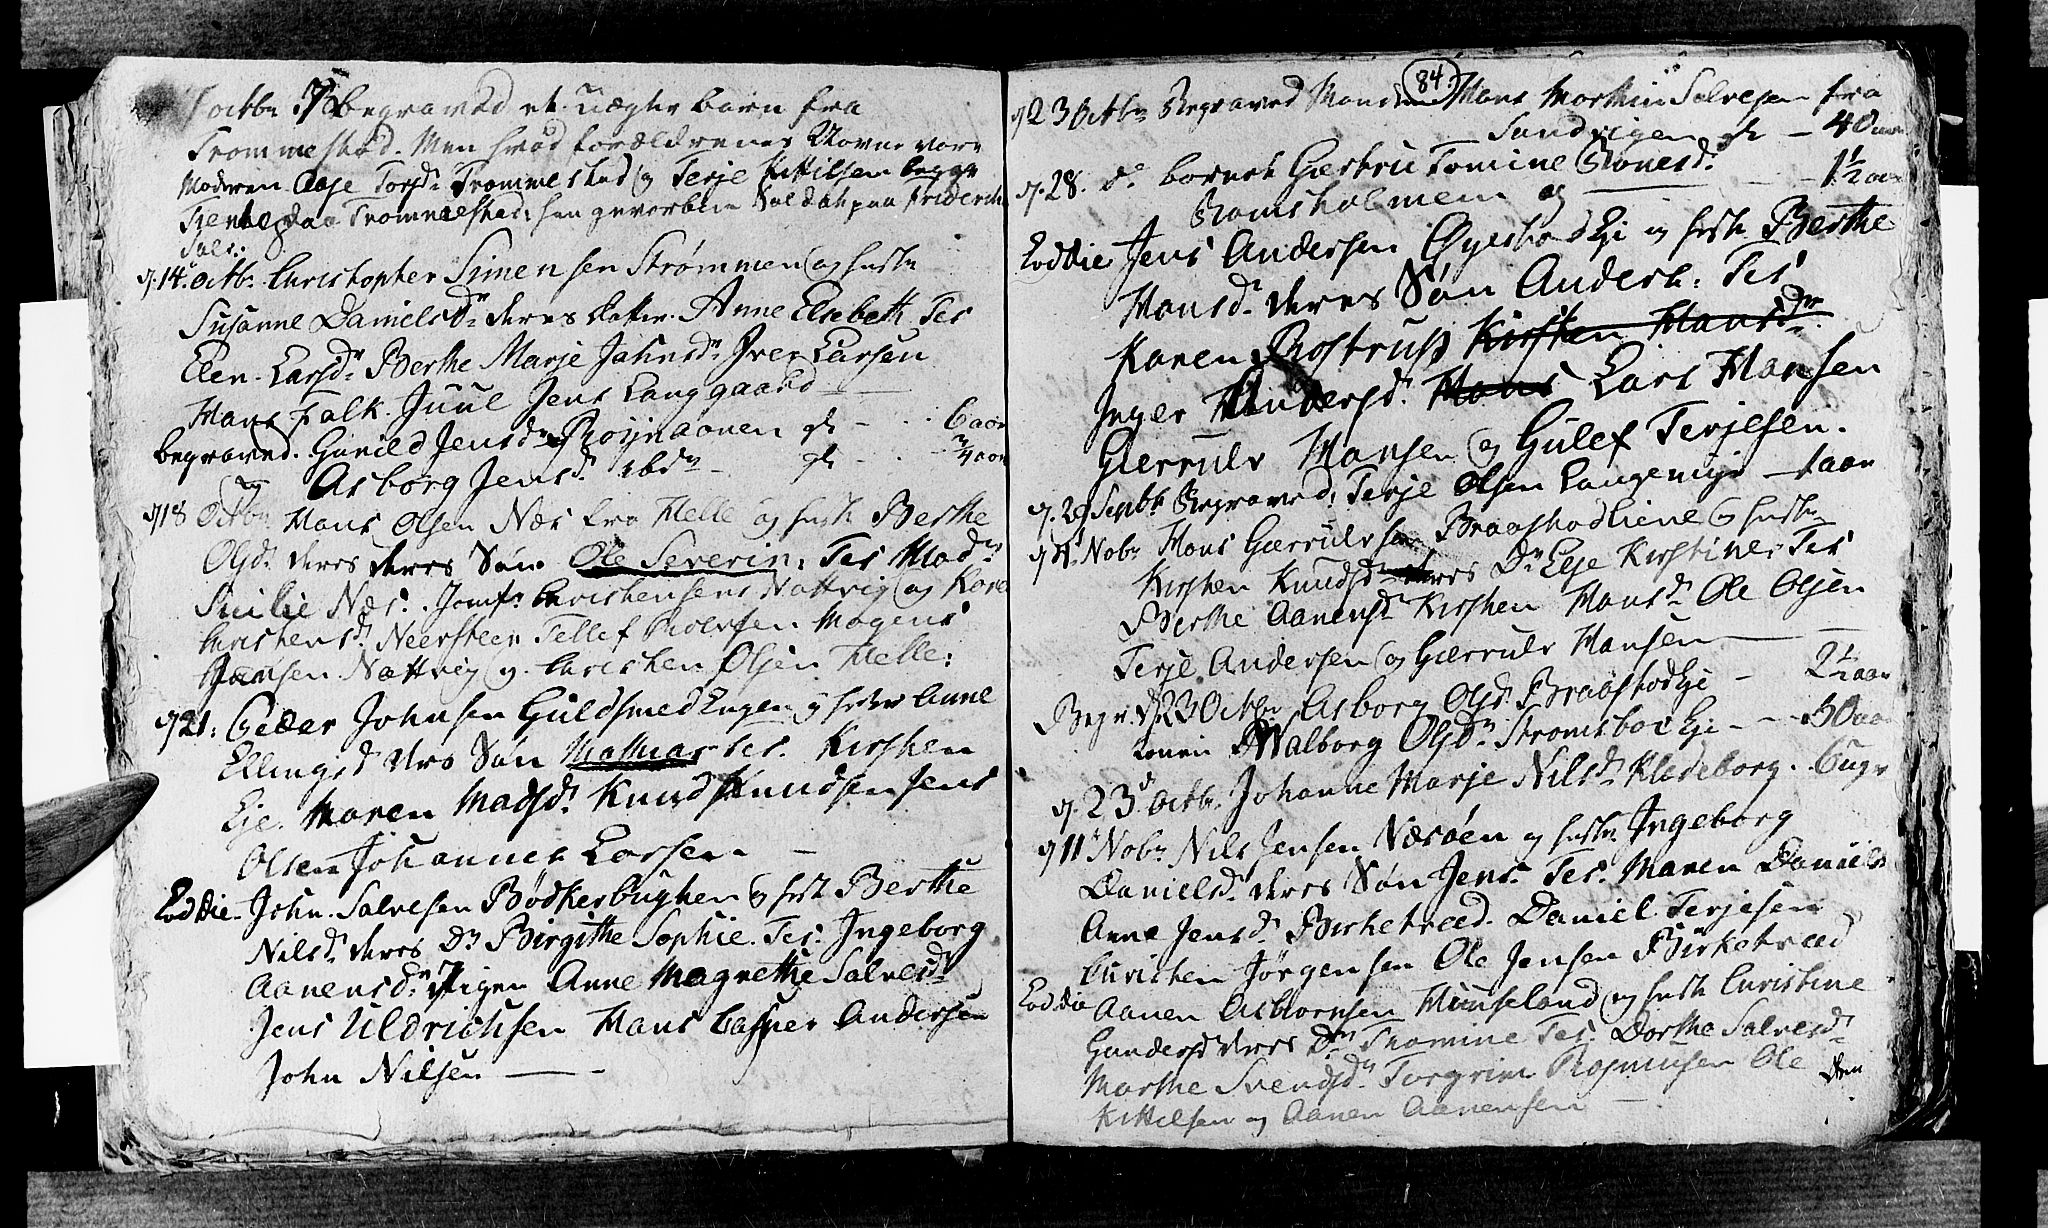 octbr 7 begraved et uægte barn fra
Trommestad. Men hvad forældrenes Navne vare
Moderen Aase Torsdr Trommestad og Terje Kittilsen begge
Tjente paa Trommestad: han geverben Soldat paa Friderich
d. 14. octbr Christopher Simensen Strømmen og hustr
Susanne Danielsdr deres datter Anne Elsebeth Tes
Elen Larsdr Berthe Marje Jahnsdr Iver Larsen
Hans Falk Juul Jens Langgaard
begraved. Gunild Jensdr Rosjnaonen gl - 6 aar
Asborg Jensdr ibdm - gl - 3/4 aar
d 18 Octbr Hans Olsen Næs fra Helle og hustr Berthe
Olsdr deres deres Søn Ole Severin: Tes Madm
Sicilie Næs. Jomfr Christensens Nattvig og Kare
Christensdr Neersteen Tellef Roersen Mogens
Jensen Nattvig og Christen Olsen Helle:
d 21: Peder Johnsen Guldsmedengen og hustr Anne
Ellingsd deres Søn Mathias Tes. Kirsten
Eje. Maren Madsdr Knud Knudsen Jens
Olsen Johannes Larsen
Eod die John Salvesen Bødkerbughen og hust Berthe
Nilsdr deres Dr Birgithe Sophie. Tes. Ingeborg
Aanensdr Pigen Anne Magrethe Salvesdr
Jens Uldrichsen Hans Casper Andersen
John Nilsen
84.
d 23 Octbr Begraved Manden Hans Morthin Salvesen fra
Sandvigen gl - 40 aar
d. 28. do barnet Giertru Tomine Ronesdr
Ramsholmen og - 1 1/2 aar
Eod die Jens Andersen Øyestad Eje og hustr Berthe
Hansdr deres Søn Anders: Tes
Karen Rostrup Kirsten Hansdr
Inger Andersdr Hans Lars Hansen
Gierrulv Hansen og Gulef Terjesen.
d. 29 Septbr Begraved: Terje Olsen Langemyr - 1 aar
d 4. Nobr Hans Gierrulvsen Braastad Liene og hustr
Kirsten Knudsdr deres Dr Else Kirstine Tes
Berthe Aanensdr Kirsten Hansdr Ole Olsen
Terje Andersen og Gierrulv Hansen
Begr. d 23 Octbr Asborg Olsdr Braastad Eje - 2 1/2 aar
Konen Walborg Olsdr Stromsboe Eje - 50 aar
d. 23d octbr. Johanne Marje Nilsdr Klodeborg. 6 uger
d 11 Nobr Nils Jensen Næsøen og hustr Ingeborg
Danielsdr deres Søn Jens. Tes. Maren Daniels
Anne Jensdr Birketvæd. Daniel Terjesen
Christen Jørgensen Ole Jensen Birketvæd
Eod die Aanen Asbiørnsen Hunseland og hustr Christine
Gundersdr deres Dr Thomine Tes. Dorthe Salvesdr
Marthe Svendsdr Torgrim Rasmusen Ole
Kittilsen og Aanen Aanensen
den